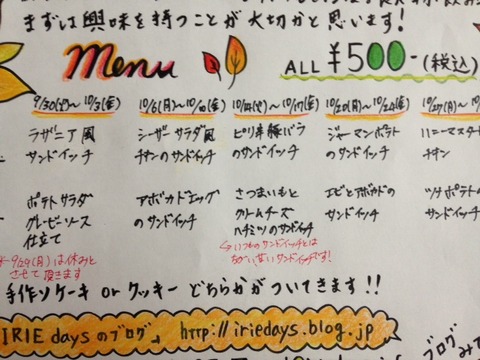 まずは興味を持つことが大切かと思います!
Menu ALL ¥500-(税込)
9/30(火)~10/3(金) 10/6(月)~10/10(金) 10/14(火)~10/17(金) 10/20(月)~10/24(金) 10/27(月)~10/
ラザニア風 シーザーサラダ風 ピリ辛豚バラ ジャーマンポテト ハニーマスター
サンドイッチ チキンのサンドイッチ のサンドイッチ のサンドイッチ チキン
ポテトサラダ アボカドエッグ さつまいもと エビとアボカドの ツナポテトの
グレービーソース のサンドイッチ クリームチーズ サンドイッチ サンドイッチ
仕立て ハチミツのサンドイッチ
いつものサンドイッチとは
ちがい甘いサンドイッチです!
*9/29(月)は休みと
させて頂きます
手作りケーキ or クッキー どちらかがついてきます!!
IRIE daysのブログ」 http://iriedays.blog.jp
ブログ